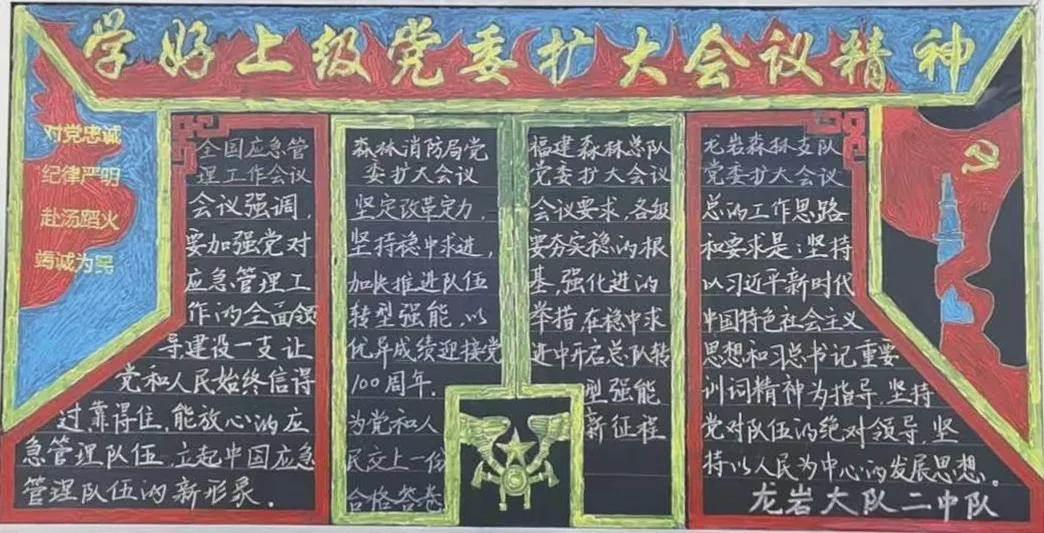 学好上级党委扩大会议精神
对党忠诚
纪律严明
赴汤蹈火
竭诚为民
全国应急管
理工作会议
会议强调，
要加强党对
应急管理工
作的全面领
导建设一支让
党和人民始终信得
过靠得住，能放心的应
急管理队伍，立起中国应急
管理队伍的新形象。
森林消防局党
委扩大会议
坚定改革定力，
坚持稳中求进，
加快推进队伍
转型强能，以
优异成绩迎接党
100周年，
为党和人
民交上一份
合格答卷
福建森林总队
党委扩大会议
会议要求，各级
要夯实稳的根
基，强化进的
举措，在稳中求
进中开启总队转
型强能
新征程
龙岩森林支队
党委扩大会议
总的工作思路
和要求是：坚持
以习近平新时代
中国特色社会主义
思想和习总书记重要
训词精神为指导，坚持
党对队伍的绝对领导，坚
持以人民为中心的发展思想。
龙岩大队二中队